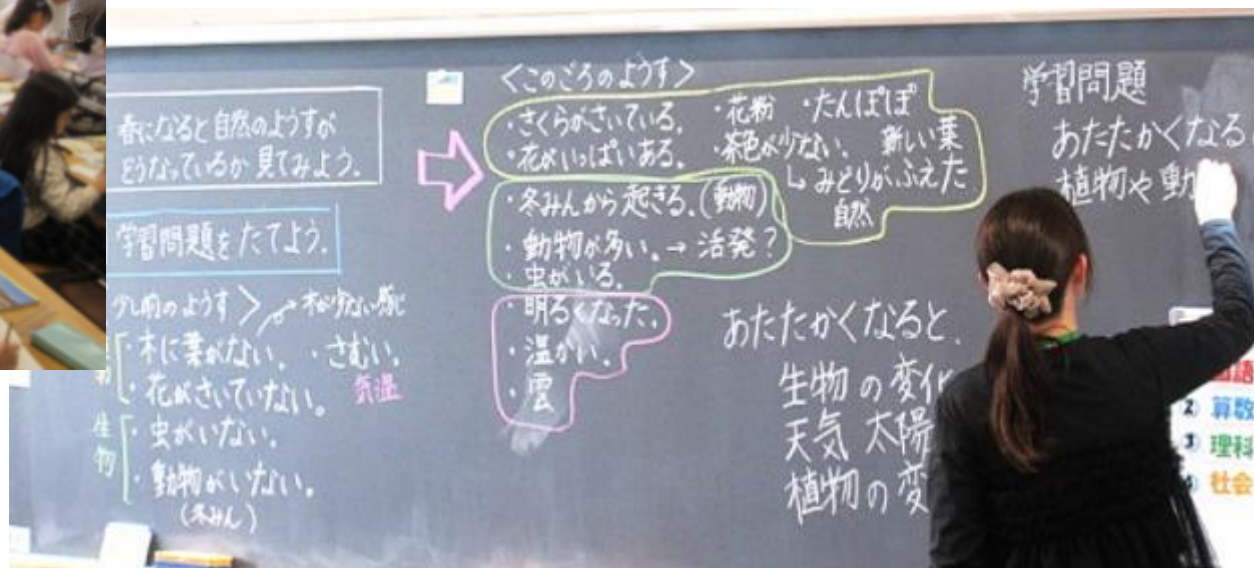 春になると自然のようすが
どうなっているか見てみよう。
学習問題をたてよう。
少し前のようす〉
・木に葉がない。 ・さむい。
・花がさいていない。 気温
生物
・虫がいない。
・動物がいない。
(冬みん)
〈このごろのようす〉
・さくらがさいている。 ・花粉 ・たんぽぽ
・花がいっぱいある。 ・茶色が少ない。 新しい葉
↳ みどりがふえた
自然
・冬みんから起きる。(動物)
・動物が多い。→ 活発?
・虫がいる。
・明るくなった。
・温かい。
・雲
あたたかくなると、
生物の変化
天気 太陽
植物の変
学習問題
あたたかくなる
植物や動
国語
2 算数
3 理科
4 社会